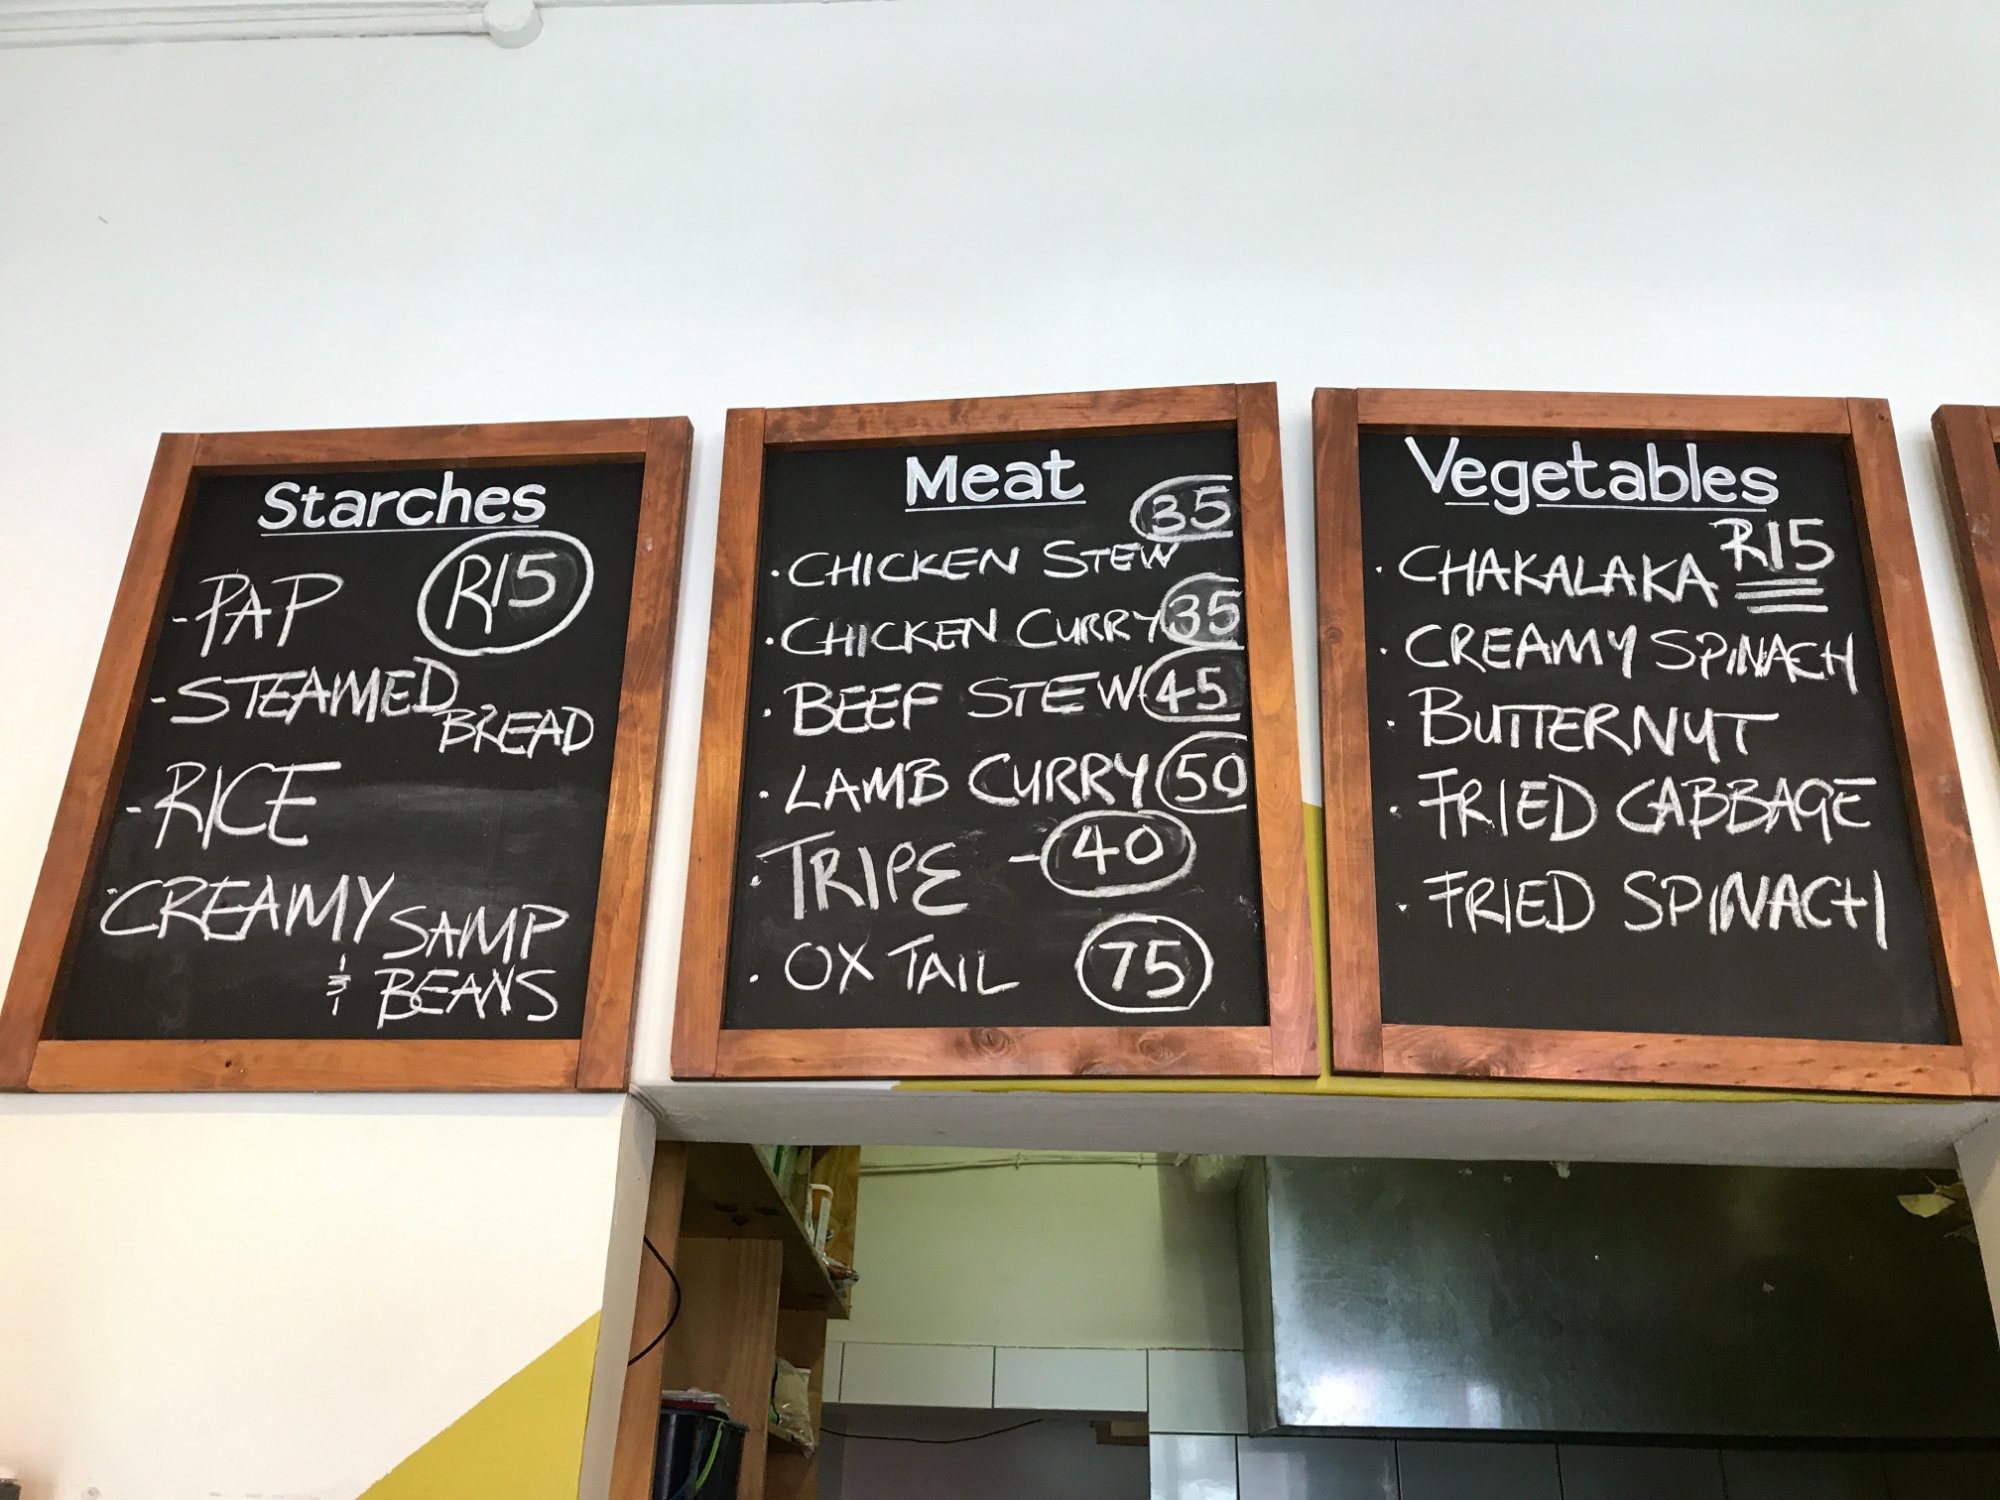 Starches
R15
-PAP
-STEAMED
BREAD
-RICE
-CREAMY SAMP
& BEANS
Meat
35
• CHICKEN STEW
• CHICKEN CURRY 35
• BEEF STEW 45
• LAMB CURRY 50
• TRIPE - 40
• OX TAIL 75
Vegetables
R15
• CHAKALAKA
• CREAMY SPINACH
• BUTTERNUT
• FRIED CABBAGE
• FRIED SPINACH